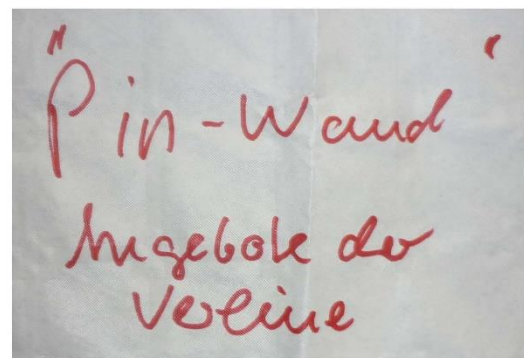 "Pin-Wand"
Angebote der
Vereine